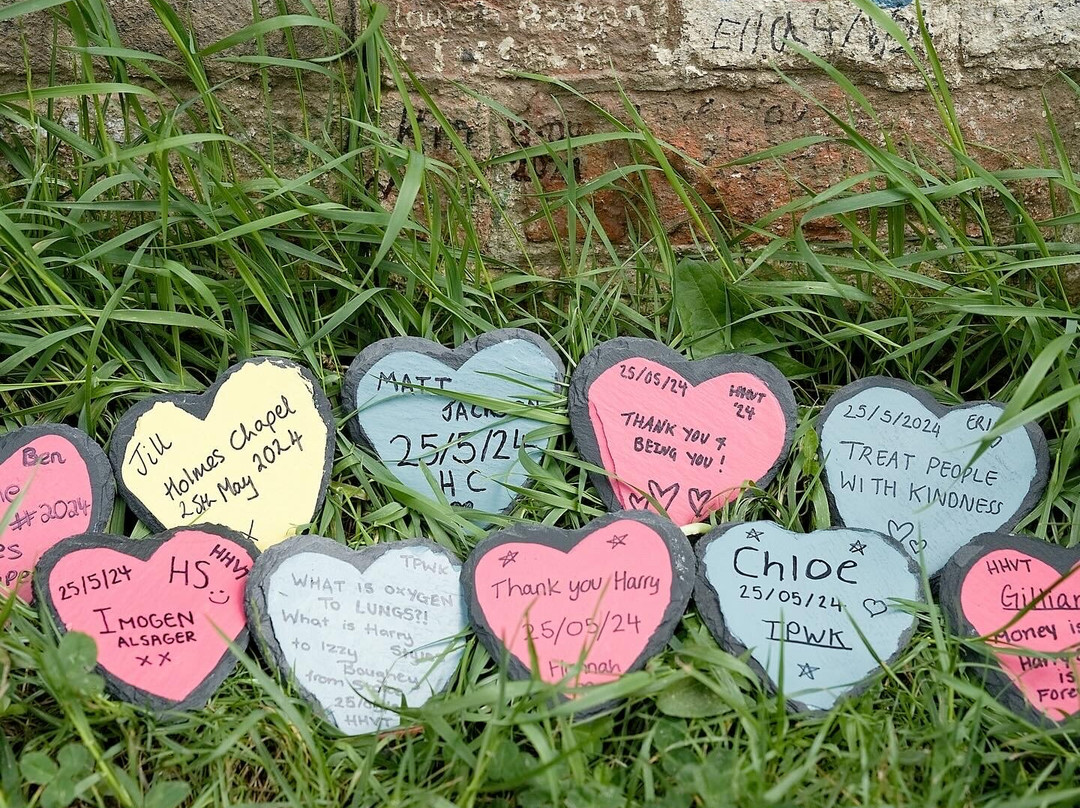 Ella
Ben
#2024
Jill
Holmes Chapel
25th May 2024
X
MATT
JACKSON
25/5/24
HC
25/05/24
HHVT
'24
THANK YOU 4
BEING YOU!
25/5/2024
TREAT PEOPLE
WITH KINDNESS
25/5/24
HS
HHVT
IMOGEN
ALSAGER
XX
TPWK
WHAT IS OXYGEN
TO LUNGS?!
What is Harry
to Izzy
Boughey
from
HHVT
Thank you Harry
25/05/24
Chloe
25/05/24
TPWK
HHVT
Gillian
Money is
Harry
is